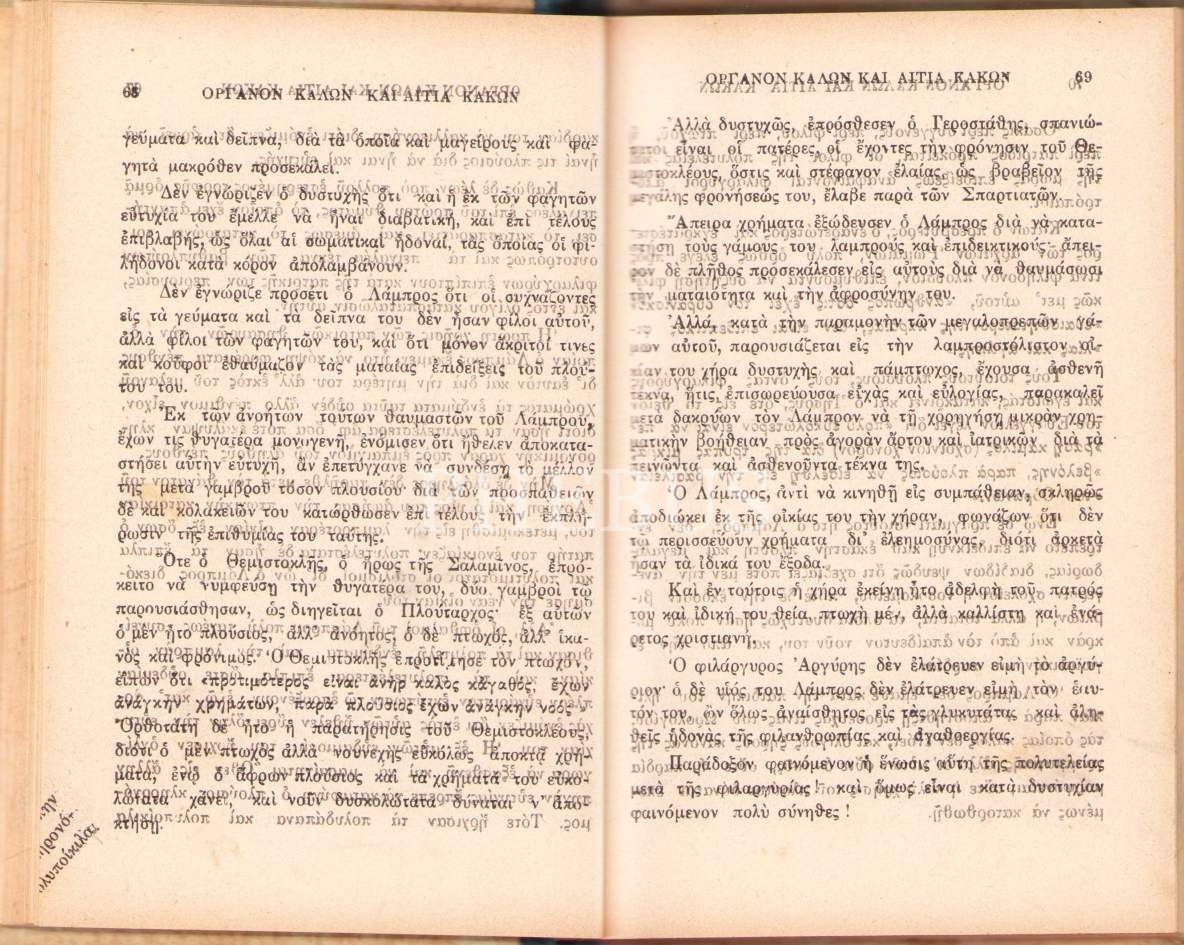 68 ΟΡΓΑΝΟΝ ΚΑΛΩΝ ΚΑΙ ΑΙΤΙΑ ΚΑΚΩΝ
γεύματα καὶ δεῖπνα, διὰ τὰ ὁποῖα καὶ μαγείρους καὶ φα-
γητὰ μακρόθεν προσεκάλει.
Δὲν ἐγνώριζεν ὁ δυστυχὴς ὅτι καὶ ἡ ἐκ τῶν φαγητῶν
εὐτυχία του ἔμελλε νὰ ἦναι διαβατική, καὶ ἐπὶ τέλους
ἐπιβλαβής, ὡς ὅλαι αἱ σωματικαὶ ἡδοναί, τὰς ὁποίας οἱ φι-
λήδονοι κατὰ κόρον ἀπολαμβάνουν.
Δὲν ἐγνώριζε προσέτι ὁ Λάμπρος ὅτι οἱ συχνάζοντες
εἰς τὰ γεύματα καὶ τὰ δεῖπνα του δὲν ἦσαν φίλοι αὐτοῦ,
ἀλλὰ φίλοι τῶν φαγητῶν του, καὶ ὅτι μόνον ἄκριτοί τινες
καὶ κοῦφοι ἐθαύμαζον τὰς ματαίας ἐπιδείξεις τοῦ πλού-
του του.
Ἐκ τῶν ἀνοήτων τούτων θαυμαστῶν τοῦ Λάμπρου,
ἔχων τις θυγατέρα μονογενῆ, ἐνόμισεν ὅτι ἤθελεν ἀποκατα-
στήσει αὐτὴν εὐτυχῆ, ἂν ἐπετύγχανε νὰ συνδέσῃ τὸ μέλλον
της μετὰ γαμβροῦ τόσον πλουσίου· διὰ τῶν προσπαθειῶν
δὲ καὶ κολακειῶν του κατώρθωσεν ἐπὶ τέλους τὴν ἐκπλή-
ρωσιν τῆς ἐπιθυμίας του ταύτης.
Ὅτε ὁ Θεμιστοκλῆς, ὁ ἥρως τῆς Σαλαμῖνος, ἐπρό-
κειτο νὰ νυμφεύσῃ τὴν θυγατέρα του, δύο γαμβροὶ τῷ
παρουσιάσθησαν, ὡς διηγεῖται ὁ Πλούταρχος· ἐξ αὐτῶν
ὁ μὲν ἦτο πλούσιος, ἀλλ' ἀνόητος, ὁ δὲ πτωχός, ἀλλ' ἱκα-
νὸς καὶ φρόνιμος. Ὁ Θεμιστοκλῆς ἐπροτίμησε τὸν πτωχόν,
εἰπὼν ὅτι «προτιμότερος εἶναι ἀνὴρ καλὸς κἀγαθός, ἔχων
ἀνάγκην χρημάτων, παρὰ πλούσιος ἔχων ἀνάγκην νοός»
Ὀρθοτάτη δὲ ἦτο ἡ παρατήρησις τοῦ Θεμιστοκλέους,
διότι ὁ μὲν πτωχὸς ἀλλὰ νουνεχὴς εὐκόλως ἀποκτᾷ χρή-
ματα, ἐνῷ ὁ ἄφρων πλούσιος καὶ τὰ χρήματά του εὐκο-
λώτατα χάνει, καὶ νοῦν δυσκολώτατα δύναται ν' ἀπο-
κτήσῃ.
ΟΡΓΑΝΟΝ ΚΑΛΩΝ ΚΑΙ ΑΙΤΙΑ ΚΑΚΩΝ 69
Ἀλλὰ δυστυχῶς, ἐπρόσθεσεν ὁ Γεροστάθης, σπανιώ-
τατοι εἶναι οἱ πατέρες, οἱ ἔχοντες τὴν φρόνησιν τοῦ Θε-
μιστοκλέους, ὅστις καὶ στέφανον ἐλαίας, ὡς βραβεῖον τῆς
μεγάλης φρονήσεώς του, ἔλαβε παρὰ τῶν Σπαρτιατῶν.
Ἄπειρα χρήματα ἐξώδευσεν ὁ Λάμπρος διὰ νὰ κατα-
στήσῃ τοὺς γάμους του λαμπροὺς καὶ ἐπιδεικτικούς· ἄπει-
ρον δὲ πλῆθος προσεκάλεσεν εἰς αὐτοὺς διὰ νὰ θαυμάσωσι
τὴν ματαιότητα καὶ τὴν ἀφροσύνην του.
Ἀλλά, κατὰ τὴν παραμονὴν τῶν μεγαλοπρεπῶν γά-
μων αὐτοῦ, παρουσιάζεται εἰς τὴν λαμπροστόλιστον οἰ-
κίαν του χήρα δυστυχὴς καὶ πάμπτωχος, ἔχουσα ἀσθενῆ
τέκνα, ἥτις, ἐπισωρεύουσα εὐχὰς καὶ εὐλογίας, παρακαλεῖ
μετὰ δακρύων τὸν Λάμπρον νὰ τῇ χορηγήσῃ μικρὰν χρη-
ματικὴν βοήθειαν πρὸς ἀγορὰν ἄρτου καὶ ἰατρικῶν διὰ τὰ
πεινῶντα καὶ ἀσθενοῦντα τέκνα της.
Ὁ Λάμπρος, ἀντὶ νὰ κινηθῇ εἰς συμπάθειαν, σκληρῶς
ἀποδιώκει ἐκ τῆς οἰκίας του τὴν χήραν, φωνάζων ὅτι δὲν
τῷ περισσεύουν χρήματα δι' ἐλεημοσύνας, διότι ἀρκετὰ
ἦσαν τὰ ἰδικά του ἔξοδα.
Καὶ ἐν τούτοις ἡ χήρα ἐκείνη ἦτο ἀδελφὴ τοῦ πατρός
του καὶ ἰδική του θεία, πτωχὴ μέν, ἀλλὰ καλλίστη καὶ ἐνά-
ρετος χριστιανή.
Ὁ φιλάργυρος Ἀργύρης δὲν ἐλάτρευεν εἰμὴ τὸ ἀργύ-
ριον· ὁ δὲ υἱός του Λάμπρος δὲν ἐλάτρευεν εἰμὴ τὸν ἑαυ-
τόν του, ὢν ὅλως ἀναίσθητος εἰς τὰς γλυκυτάτας καὶ ἀλη-
θεῖς ἡδονὰς τῆς φιλανθρωπίας καὶ ἀγαθοεργίας.
Παράδοξον φαινόμενον ἡ ἕνωσις αὕτη τῆς πολυτελείας
μετὰ τῆς φιλαργυρίας! καὶ ὅμως εἶναι κατὰ δυστυχίαν
φαινόμενον πολὺ σύνηθες!